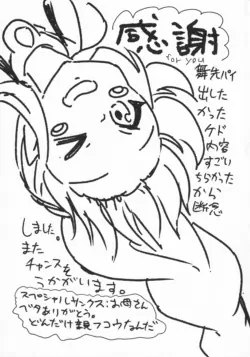 感謝
for you
舞先パイ
出した
かった
ケド
内容
すごい
ちがった
から
断念
しました。
また
チャンスを
うかがいます。
スペシャルサンクス:お母さん
ベタありがとう。
どんだけ親フコウなんだ